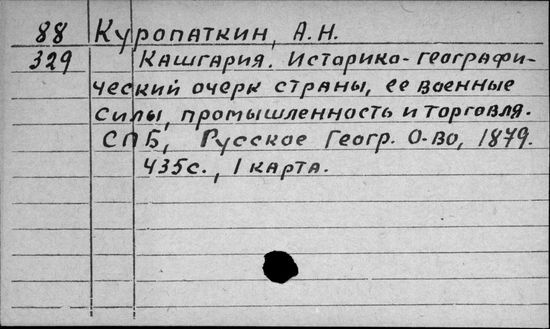 88 Куропаткин, А.Н.
329 Кашгария. Историко-географи-
ческий очерк страны, ее военные
силы, промышленность и торговля.
СПБ, Русское Геогр. О-во, 1879.
435с., 1 карта.